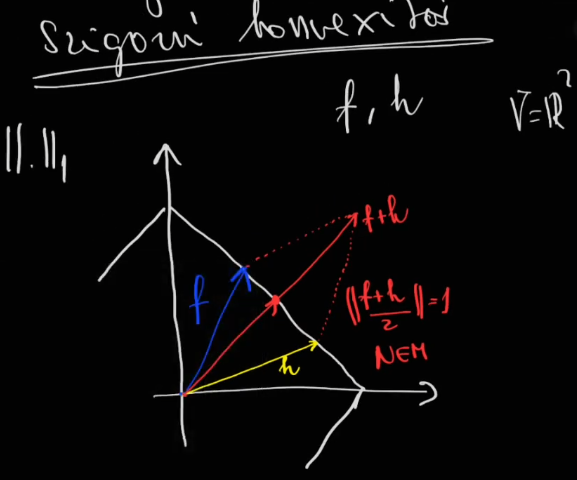 Szigorú konvexitás
f, h
V=ℝ²
||.||₁
f+h
f
||f+h/2||=1
NEM
h